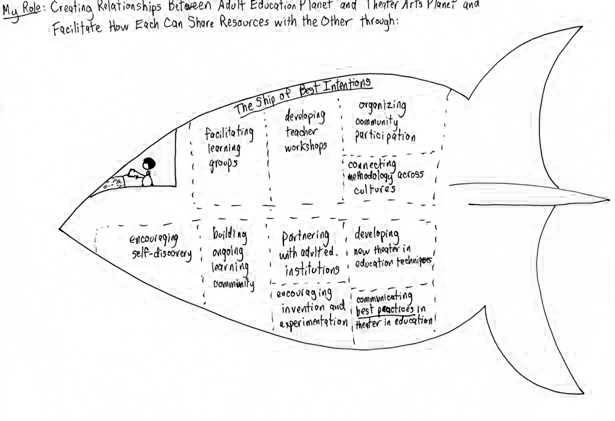 My Role: Creating Relationships Between Adult Education Planet and Theater Arts Planet and
Facilitate How Each Can Share Resources with the Other through:
The Ship of Best Intentions
facilitating
learning
groups
developing
teacher
workshops
organizing
community
participation
connecting
methodology across
cultures
encouraging
self-discovery
building
ongoing
learning
community
partnering
with adult ed.
institutions
encouraging
invention and
experimentation
developing
new theater in
education techniques
communicating
best practices in
theater in education